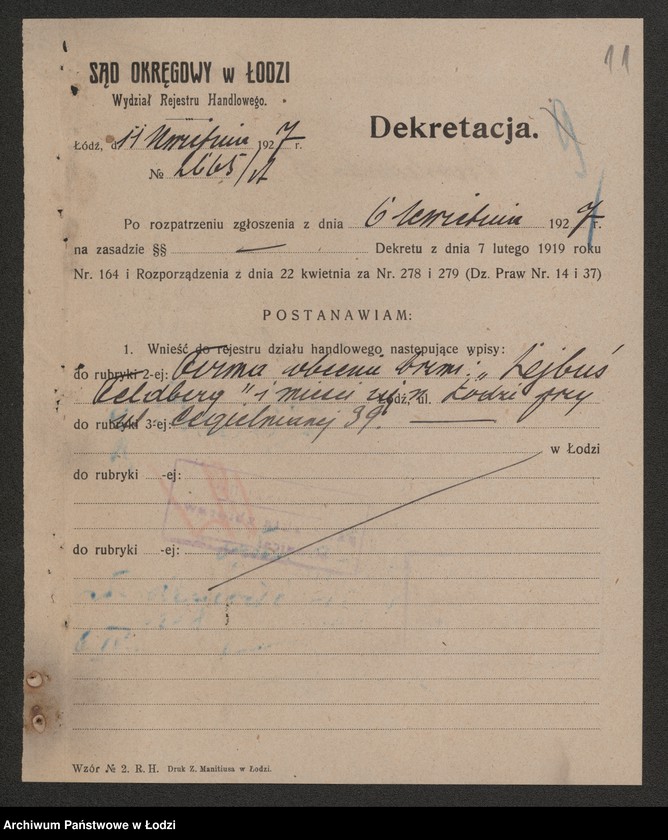 11
SĄD OKRĘGOWY w ŁODZI
Wydział Rejestru Handlowego.
Łódź, d. 11 Kwietnia 1927 r.
№ 2665/A
Dekretacja.
Po rozpatrzeniu zgłoszenia z dnia 6 kwietnia 1927 r.
na zasadzie §§ — Dekretu z dnia 7 lutego 1919 roku
Nr. 164 i Rozporządzenia z dnia 22 kwietnia za Nr. 278 i 279 (Dz. Praw Nr. 14 i 37)
POSTANAWIAM:
1. Wnieść do rejestru działu handlowego następujące wpisy:
do rubryki 2-ej: Firma obecnie brzmi: „Lejbuś
Feldberg" i mieści się w Łodzi przy
Łódź, ul.
do rubryki 3-ej: ul. Cegielnianej 39.
w Łodzi
do rubryki -ej:
do rubryki -ej:
Wzór № 2. R. H. Druk Z. Manitiusa w Łodzi.
Archiwum Państwowe w Łodzi